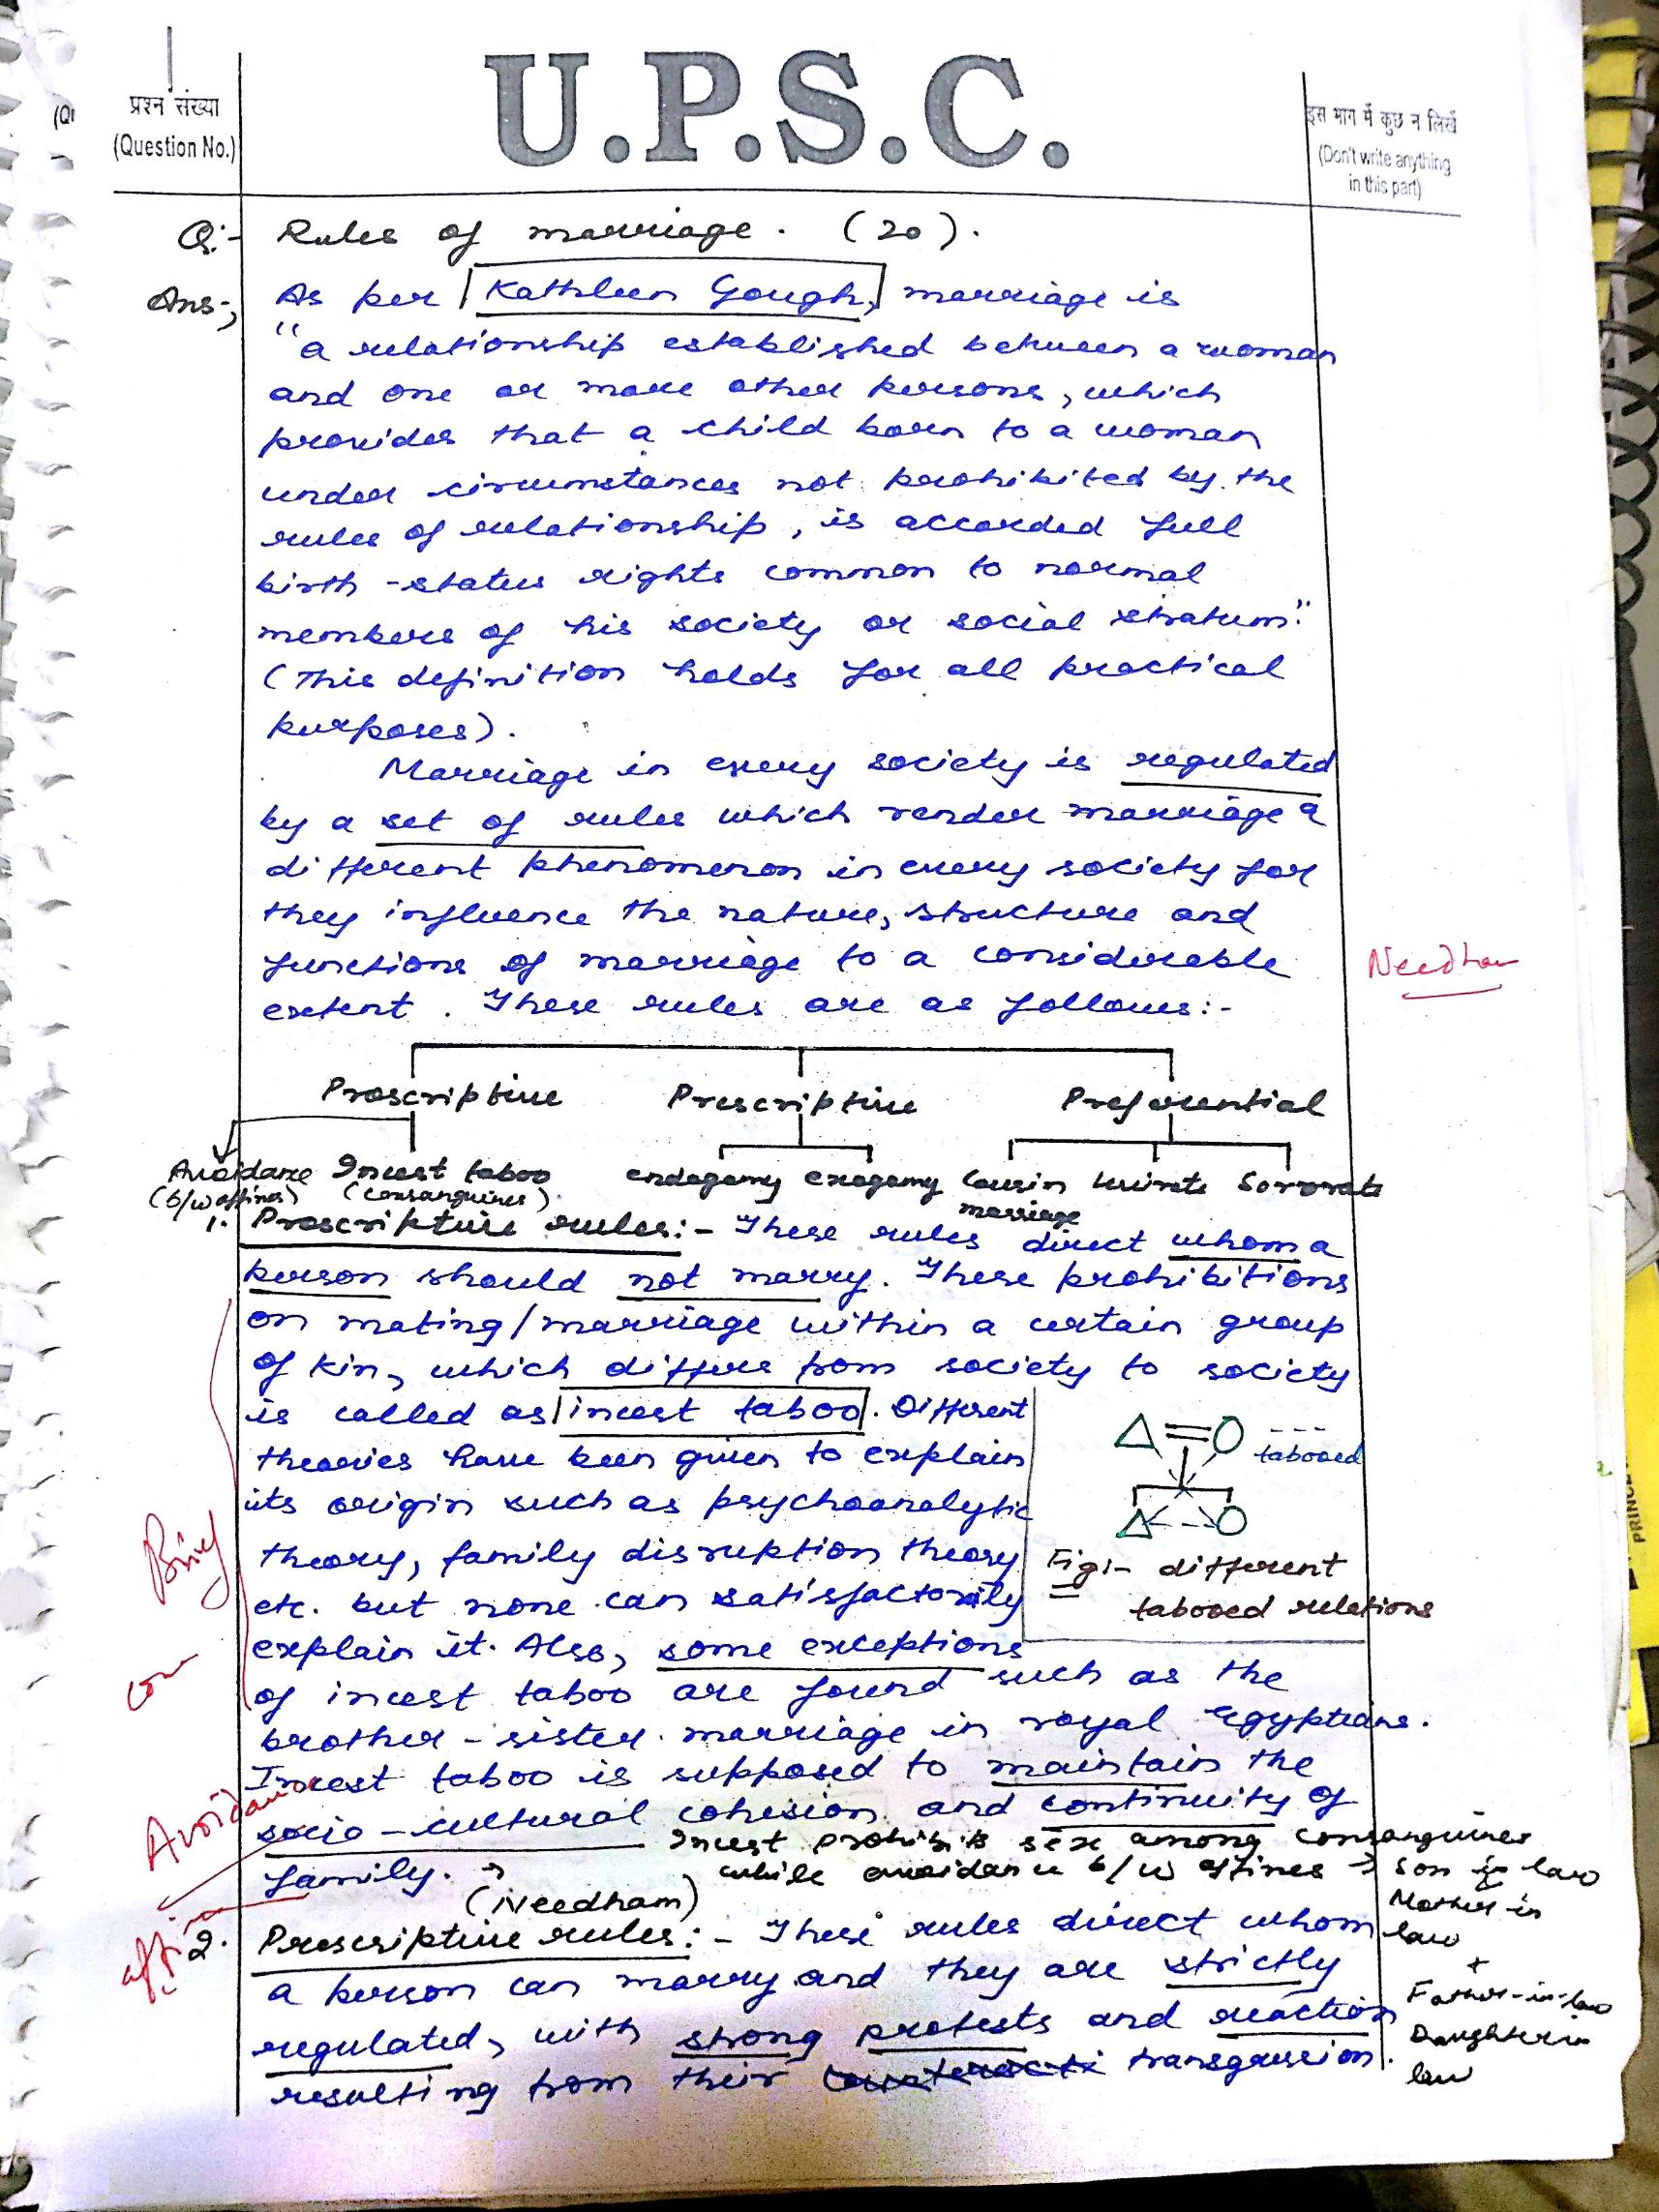 1
प्रश्न संख्या
(Question No.)
U.P.S.C.
इस भाग में कुछ न लिखें
(Don't write anything
in this part)
Q:- Rules of marriage. (20).
Ans:- As per Kathleen Gough, marriage is
"a relationship established between a woman
and one or more other persons, which
provides that a child born to a woman
under circumstances not prohibited by the
rules of relationship, is accorded full
birth-status rights common to normal
members of his society or social stratum."
(This definition holds for all practical
purposes).
Marriage in every society is regulated
by a set of rules which render marriage a
different phenomenon in every society for
they influence the nature, structure and
functions of marriage to a considerable
extent. These rules are as follows:-
Needham
Proscriptive Prescriptive Preferential
Avoidance Incest taboo endogamy exogamy Cousin marriage levirate Sororate
(b/w affines) (consanguines)
1. Proscriptive rules:- These rules direct whom a
person should not marry. These prohibitions
on mating/marriage within a certain group
of kin, which differs from society to society
is called as incest taboo. Different
theories have been given to explain
its origin such as psychoanalytic
theory, family disruption theory
etc. but none can satisfactorily
explain it. Also, some exceptions
of incest taboo are found such as the
brother-sister marriage in royal Egyptians.
Incest taboo is supposed to maintain the
socio-cultural cohesion and continuity of
family.
tabooed
Fig:- different
tabooed relations
Brief
Avoidance
affi
Incest prohibits sex among consanguines
while avoidance b/w affines → Son in law
Mother-in
law
+
Father-in-law
Daughter in
law
(Needham)
2. Prescriptive rules:- These rules direct whom
a person can marry and they are strictly
regulated, with strong protests and reaction
resulting from their transgression.
PRINCE